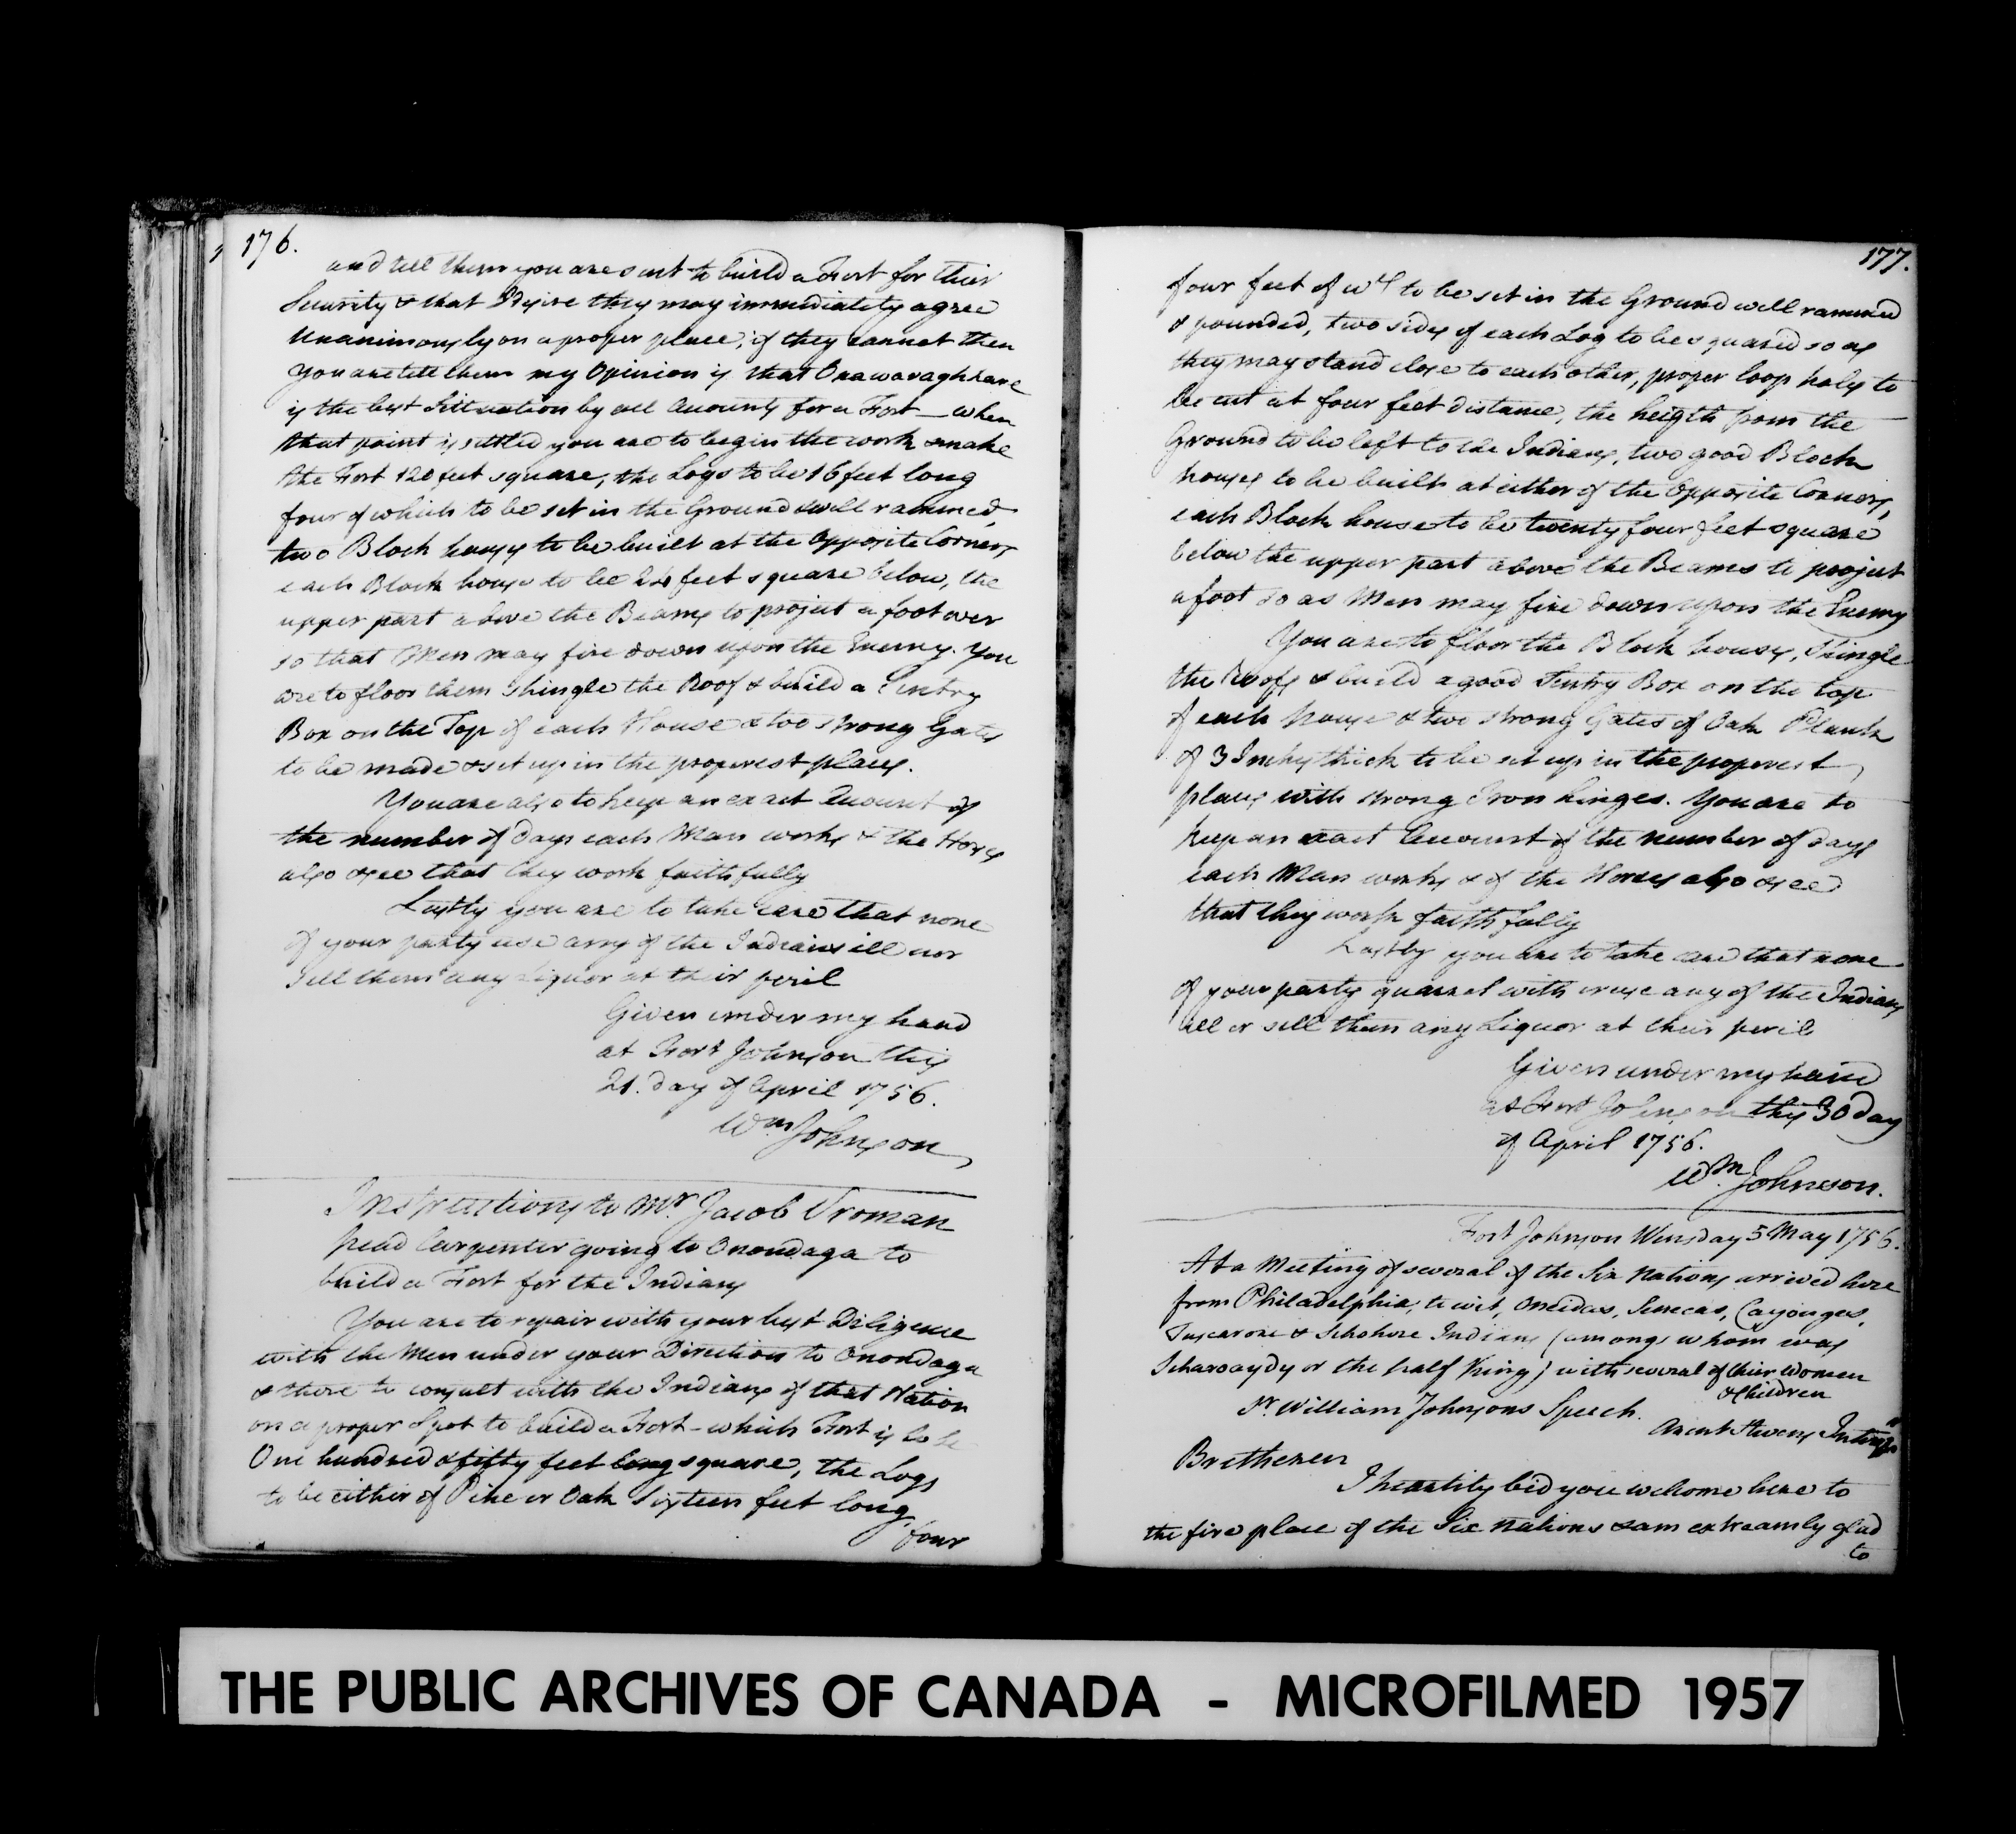 176.
and tell them you are sent to build a Fort for their
Security & that I desire they may immediately agree
Unanimously on a proper place, if they cannot then
you are tell them my Opinion is that Onawaraghhare
is the best Sittuation by all Accounts for a Fort — when
that point is settled you are to begin the work & make
the Fort 120 feet square, the Logs to be 16 feet long
four of which to be set in the Ground & well rammed,
two Block houses to be built at the Opposite Corners
each Block house to be 24 feet square below, the
upper part above the Beams to project a foot over
so that Men may fire down upon the Enemy. You
are to floor them shingle the Roof & build a Sentry
Box on the Top of each House & too strong Gates
to be made & set up in the properest places.
You are also to keep an exact Account of
the number of days each Man works & the Horses
also & see that they work faithfully
Lastly you are to take care that none
of your party use any of the Indians ill nor
Sell them any Liquor at their peril
Given under my hand
at Fort Johnson this
21. day of April 1756.
Wm Johnson
Instructions to Mr. Jacob Vroman
head Carpenter going to Onondaga to
build a Fort for the Indians
You are to repair with your best Diligence
with the Men under your Direction to Onondaga
& there to consult with the Indians of that Nation
on a proper Spot to build a Fort - which Fort is to be
One hundred & fifty feet long square, the Logs
to be either of Pine or Oak Sixteen feet long,
four
177.
four feet of wch to be set in the Ground well rammed
& pounded, two sides of each Log to be squared so as
they may stand close to each other, proper loop holes to
be cut at four feet distance, the heigth from the
Ground to be left to the Indians, two good Block
houses to be built at either of the Opposite Corners,
each Block house to be twenty four feet square
below the upper part above the Beams to project
a foot so as Men may fire down upon the Enemy
You are to floor the Block houses, Shingle
the Roofs & build a good Sentry Box on the top
of each house & two strong Gates of Oak Plank
of 3 Inches thick to be set up in the properest
places with strong Iron hinges. You are to
keep an exact Account of the number of days
each Man works & of the Horses also & see
that they work faithfully
Lastly you are to take care that none
of your party quarrel with or use any of the Indians
ill or sell them any Liquor at their peril
Given under my hand
at Fort Johnson this 30 day
of April 1756.
Wm. Johnson.
Fort Johnson Wensday 5 May 1756.
At a Meeting of several of the Six Nations arrived here
from Philadelphia, to wit, Oneidas, Senecas, Cayouges,
Tuscarore & Schohare Indians (among whom was
Scharoaydy or the half King) with several of their Women
& Children
Sr. William Johnsons Speech.
Arent Stevens Interpr
Brethenen
I heartily bid you welcome here to
the fire place of the Six Nations & am extreamly glad
to
THE PUBLIC ARCHIVES OF CANADA - MICROFILMED 1957